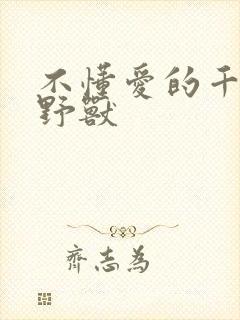 不懂愛的千
野獸
齊志為